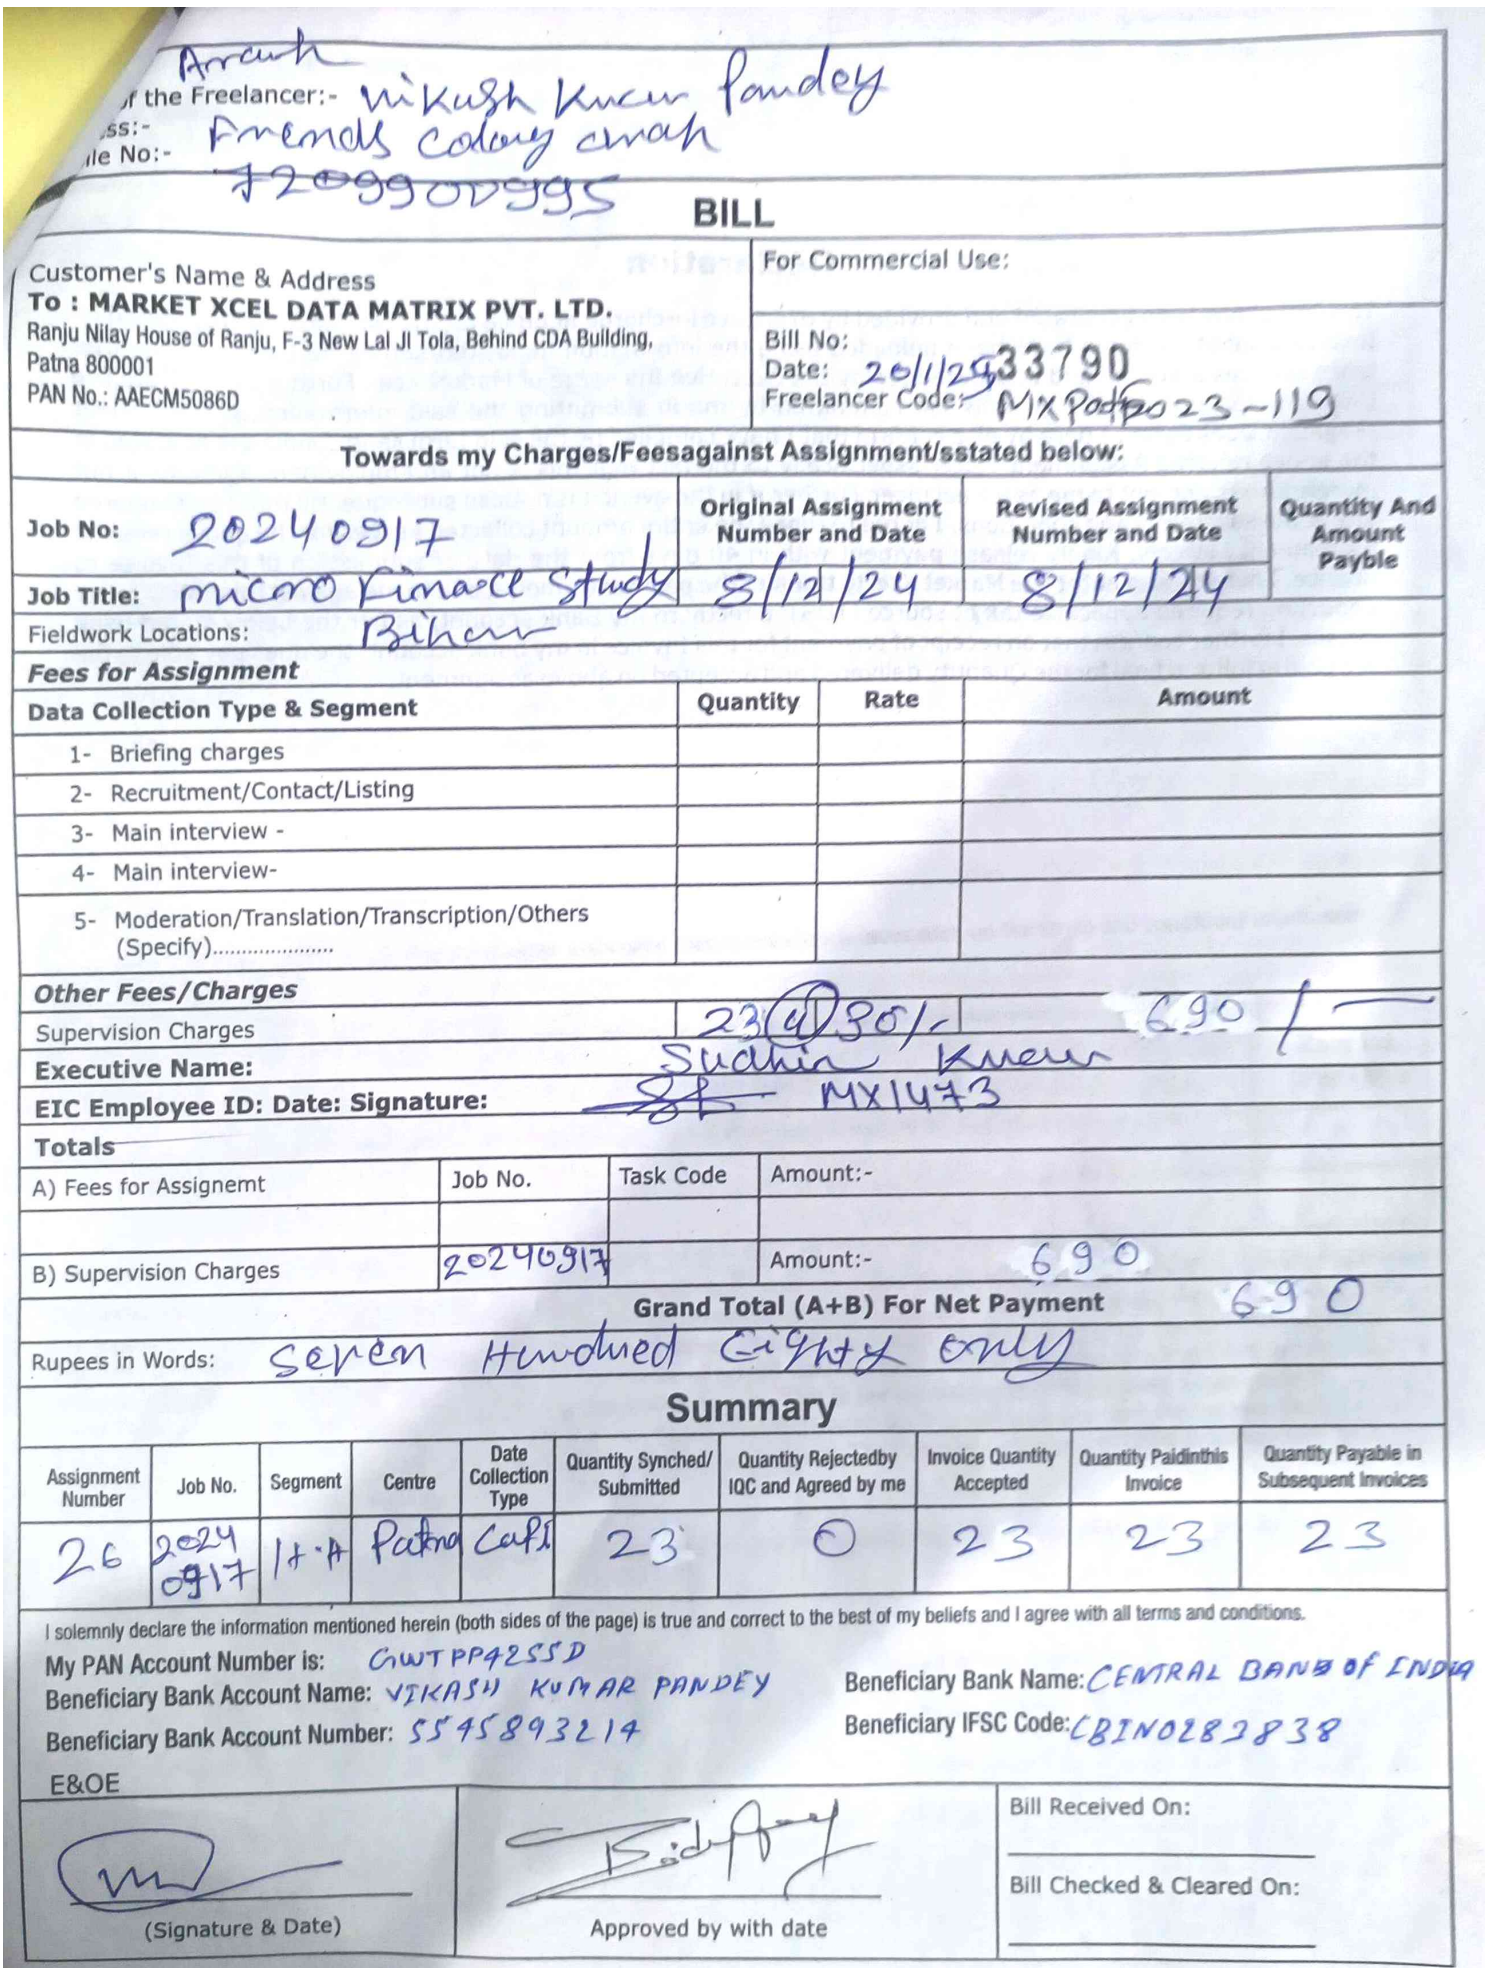 Arrauh
of the Freelancer:- Vikash Kucur Pandey
ss:- Friends colony arrah
ile No:- 7209900995
BILL
Customer's Name & Address
To : MARKET XCEL DATA MATRIX PVT. LTD.
Ranju Nilay House of Ranju, F-3 New Lal JI Tola, Behind CDA Building,
Patna 800001
PAN No.: AAECM5086D
For Commercial Use:
Bill No: 33790
Date: 20/1/25
Freelancer Code:- 2023-119
Towards my Charges/Feesagainst Assignment/sstated below:
Job No: 20240917
Original Assignment Number and Date
Revised Assignment Number and Date
Quantity And Amount Payble
Job Title: micro Finace Study 8/12/24 8/12/24
Fieldwork Locations: Bihar
Fees for Assignment
Data Collection Type & Segment Quantity Rate Amount
1- Briefing charges
2- Recruitment/Contact/Listing
3- Main interview -
4- Main interview-
5- Moderation/Translation/Transcription/Others
(Specify).....................
Other Fees/Charges
Supervision Charges 23 @ 30/- 690/-
Executive Name: Sudhir Kucur
EIC Employee ID: Date: Signature: MX1473
Totals
A) Fees for Assignemt Job No. Task Code Amount:-
B) Supervision Charges 20240917 Amount:- 690
Grand Total (A+B) For Net Payment 690
Rupees in Words: Seven Hundred Eighty only
Summary
Assignment Number Job No. Segment Centre Date Collection Type Quantity Synched/ Submitted Quantity Rejectedby IQC and Agreed by me Invoice Quantity Accepted Quantity Paidinthis Invoice Quantity Payable in Subsequent Invoices
26 20240917 H.A Patna Capi 23 0 23 23 23
I solemnly declare the information mentioned herein (both sides of the page) is true and correct to the best of my beliefs and I agree with all terms and conditions.
My PAN Account Number is: GWTPP4255D
Beneficiary Bank Account Name: VIKASH KUMAR PANDEY
Beneficiary Bank Name: CENTRAL BANK OF INDIA
Beneficiary Bank Account Number: 5545893214
Beneficiary IFSC Code: CBIN0283838
E&OE
(Signature & Date)
Approved by with date
Bill Received On:
Bill Checked & Cleared On: